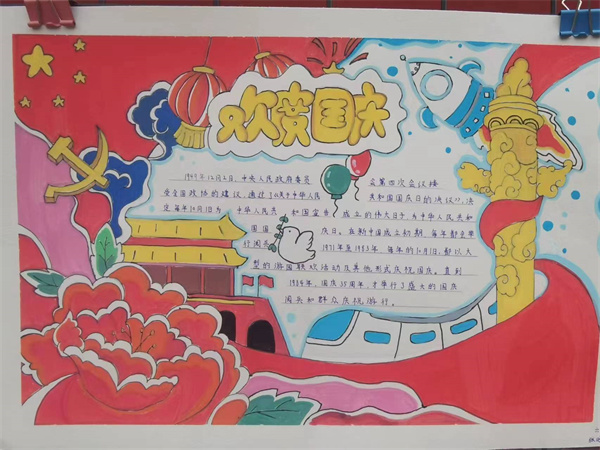 欢度国庆
1949年12月2日,中央人民政府委员会第四次会议接
受全国政协的建议,通过了《关于中华人民共和国国庆日的决议》,决
定每年10月1日为中华人民共和国宣告成立的伟大日子,为中华人民共和
国国庆日。在新中国成立初期,每年都会举
行阅兵 1971年至1983年,每年的10月1日,都以大
型的游园联欢活动及其他形式庆祝国庆。直到
1984年,国庆35周年,才举行了盛大的国庆
阅兵和群众庆祝游行。